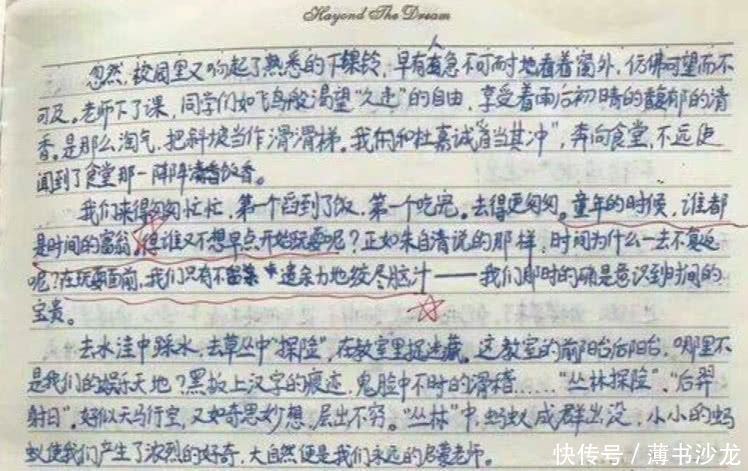 Hayond The Dream
忽然,校园里又响起了熟悉的下课铃,早有人急不可耐地看着窗外,仿佛可望而不
可及。老师下了课,同学们如飞鸟般渴望“久违”的自由,享受着雨后初晴的馥郁的清
香。是那么淘气,把斜坡当作滑滑梯。我和杜嘉诚“首当其冲”,奔向食堂,不远便
闻到了食堂那一阵阵清香饭香。
我们来得匆匆忙忙,第一个舀到了饭,第一个吃完。去得更匆匆。童年的时候,谁都
是时间的富翁,但谁又不想早点开始玩耍呢?正如朱自清说的那样,时间为什么一去不复返
呢?在玩耍面前,我们只有不遗余力地绞尽脑汁——我们那时的确是意识到时间的
宝贵。
去水洼中踩水,去草丛中“探险”,在教室里捉迷藏。这教室的前阳台后阳台,哪里不
是我们的娱乐天地?黑板上汉字的痕迹,鬼脸中不时的滑稽……“丛林探险”、“后羿
射日”。好似天马行空,又如奇思妙想,层出不穷。“丛林”中,蚂蚁成群出没,小小的蚂
蚁使我们产生了浓烈的好奇,大自然便是我们永远的启蒙老师。
快传号/薄书沙龙